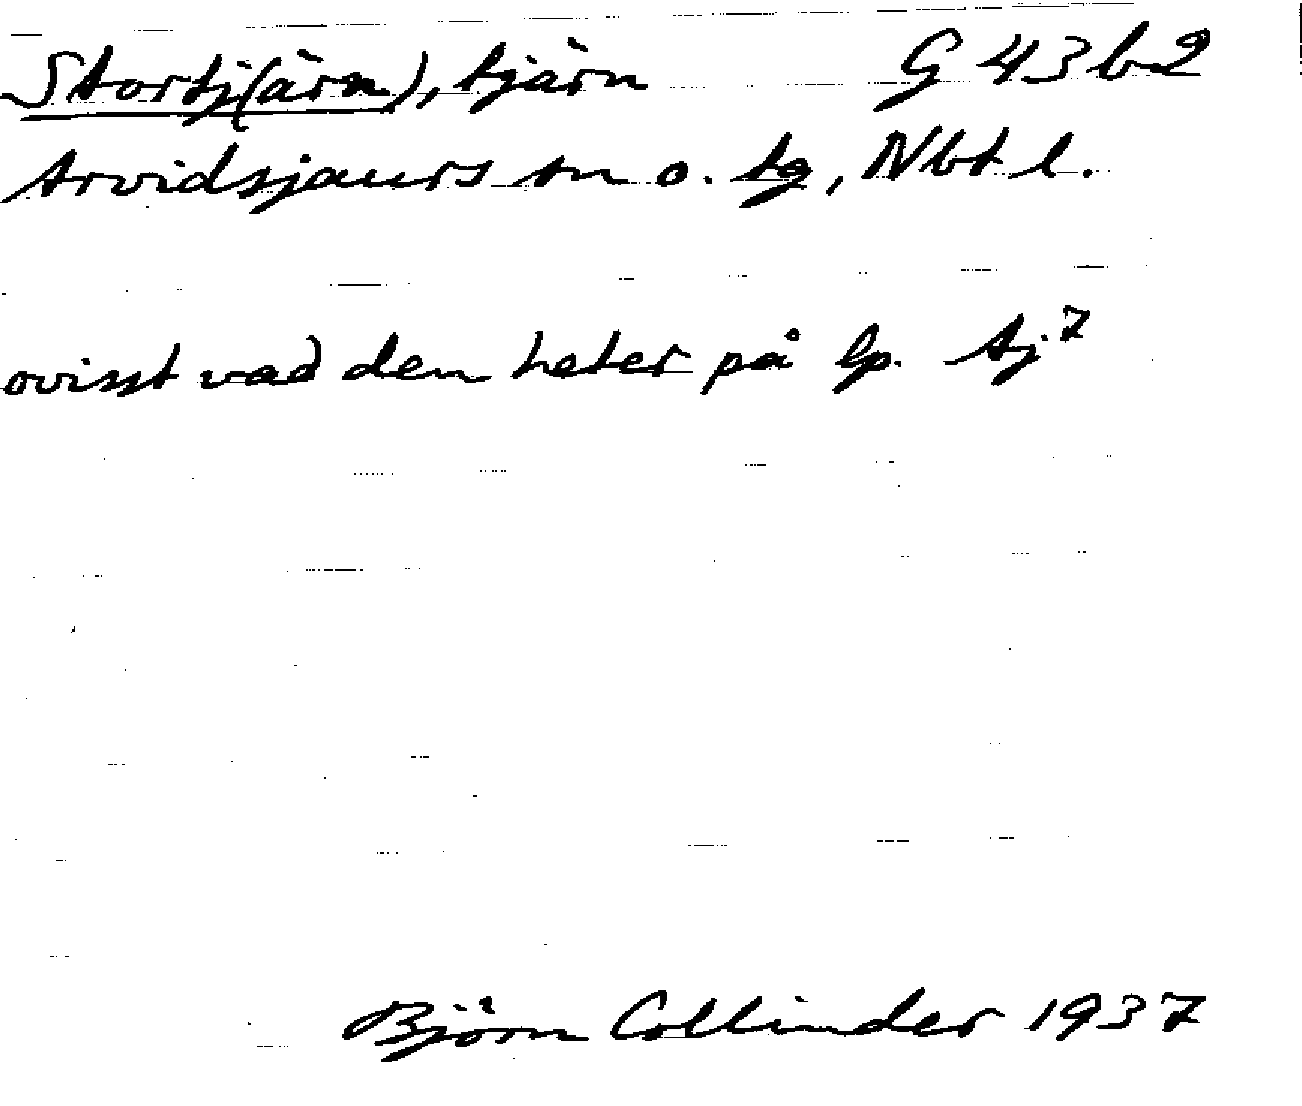 Stortj(ärn), tjärn G 43b2
Arvidsjaurs sn o. tg, Nbt l.
ovisst vad den heter på lp. Aj.7
Björn Collinder 1937